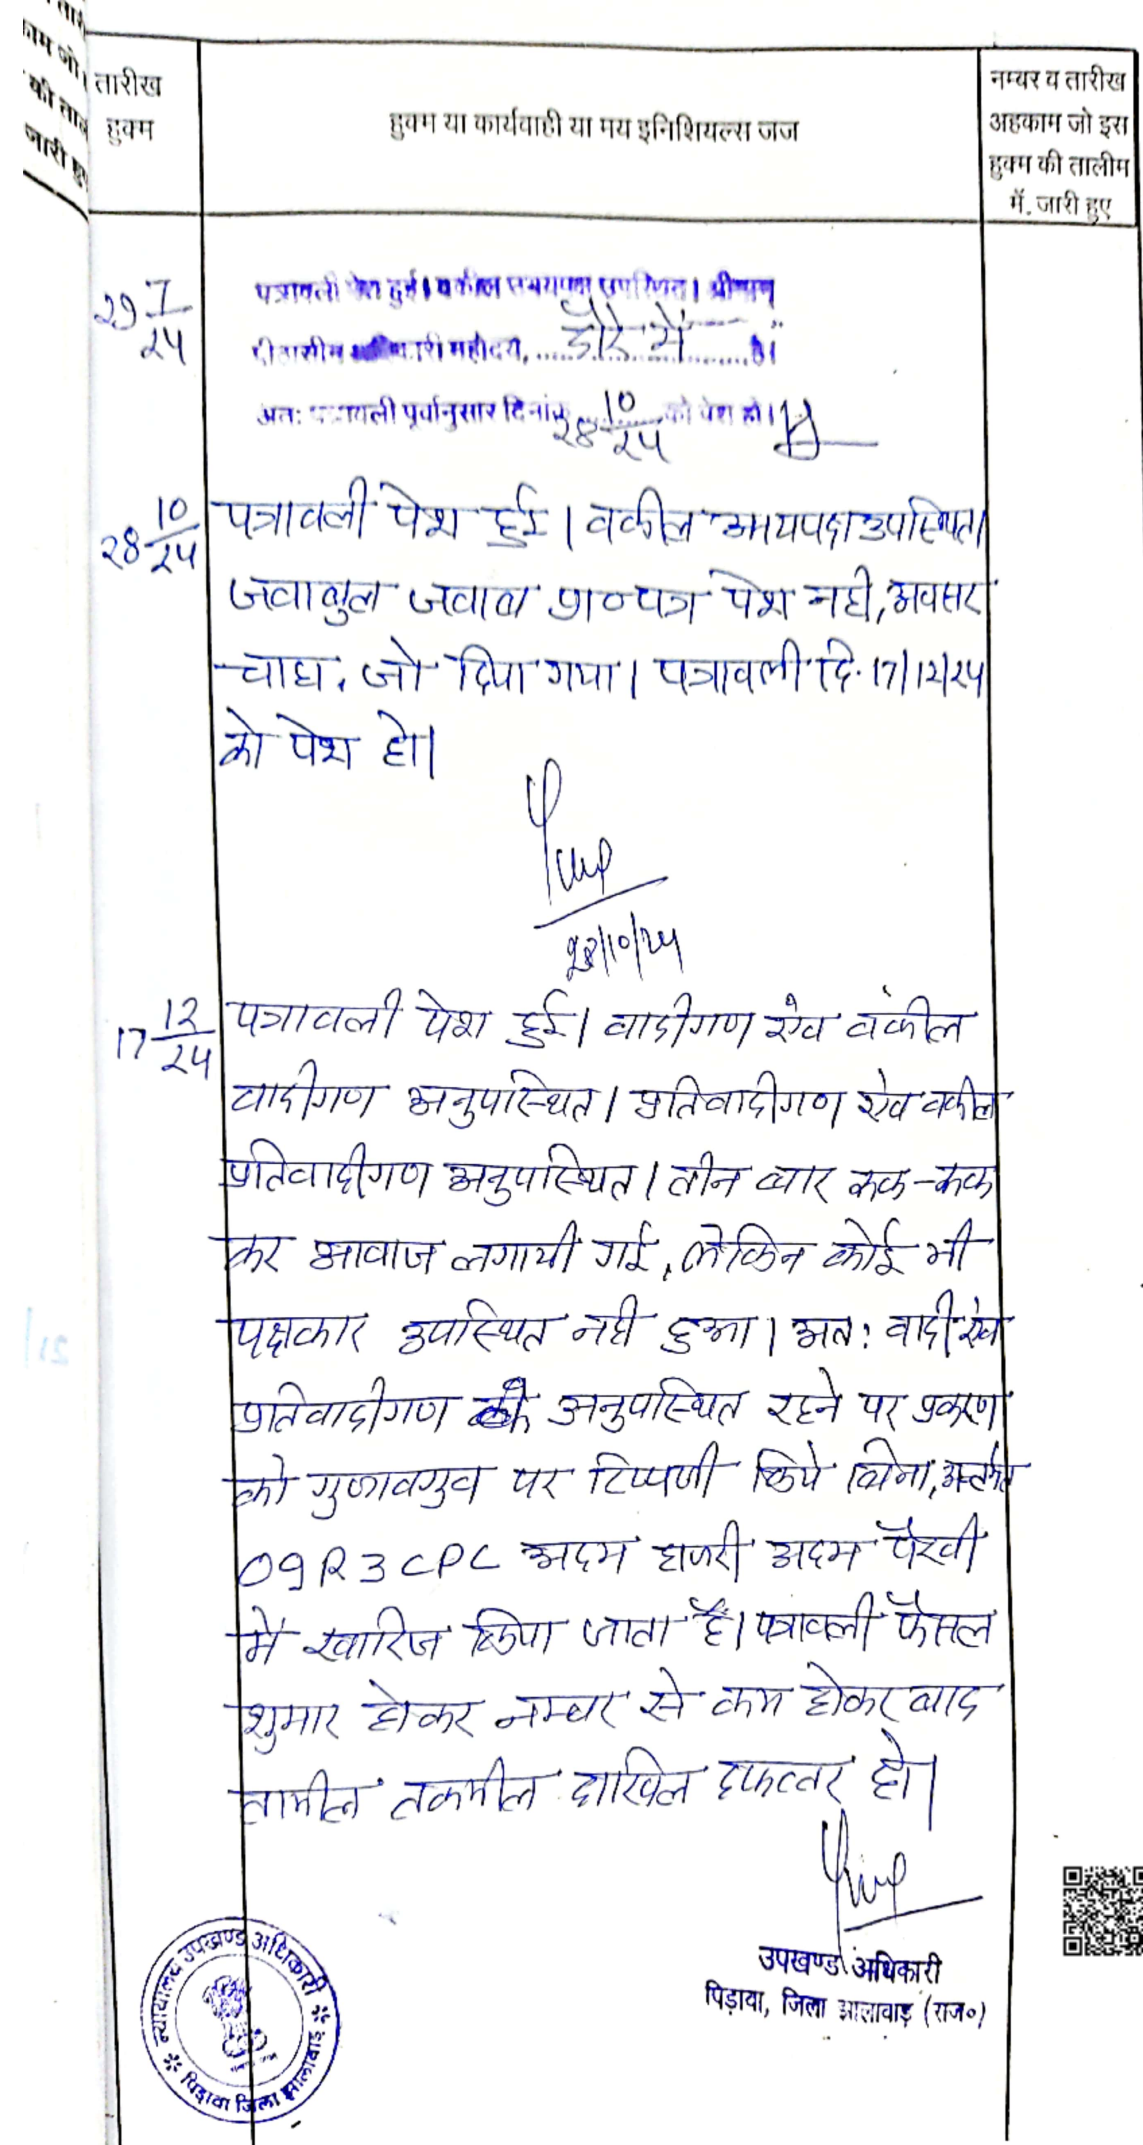 तारीख
हुक्म
हुक्म या कार्यवाही या मय इनिशियल्स जज
नम्बर व तारीख
अहकाम जो इस
हुक्म की तालीम
में जारी हुए
की
जारी
29 7/24
पत्रावली पेश हुई। वकील उभयपक्ष उपस्थित। श्रीमान्
पीठासीन अधिकारी महोदय, दौरे में है।
अतः पत्रावली पूर्वानुसार दिनांक 28 10/24 को पेश हो।
28 10/24
पत्रावली पेश हुई। वकील उपस्थित।
जवाबुल जवाब पेश नही, अवसर
चाहा, जो दिया गया। पत्रावली दि. 17/12/24
को पेश हो।
28/10/24
17 12/24
पत्रावली पेश हुई। वादीगण एंव वकील
वादीगण अनुपस्थित। प्रतिवादीगण एंव वकील
प्रतिवादीगण अनुपस्थित। तीन बार रूक-रूक
कर आवाज लगायी गई, लेकिन कोई भी
पक्षकार उपस्थित नही हुआ। अतः वादी एंव
प्रतिवादीगण के अनुपस्थित रहने पर प्रकरण
को गुणावगुण पर टिप्पणी किये बिना, अन्तर्गत
O9R3 CPC अदम हाजरी अदम पैरवी
में खारिज किया जाता है। पत्रावली फैसल
शुमार होकर नम्बर से कम होकर बाद
तामील तकमील दाखिल दफ्तर हो।
उपखण्ड अधिकारी
पिड़ावा, जिला झालावाड़ (राज०)
न्यायालय उपखण्ड अधिकारी
पिड़ावा जिला झालावाड़